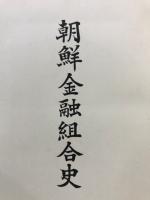 朝鮮金融組合史